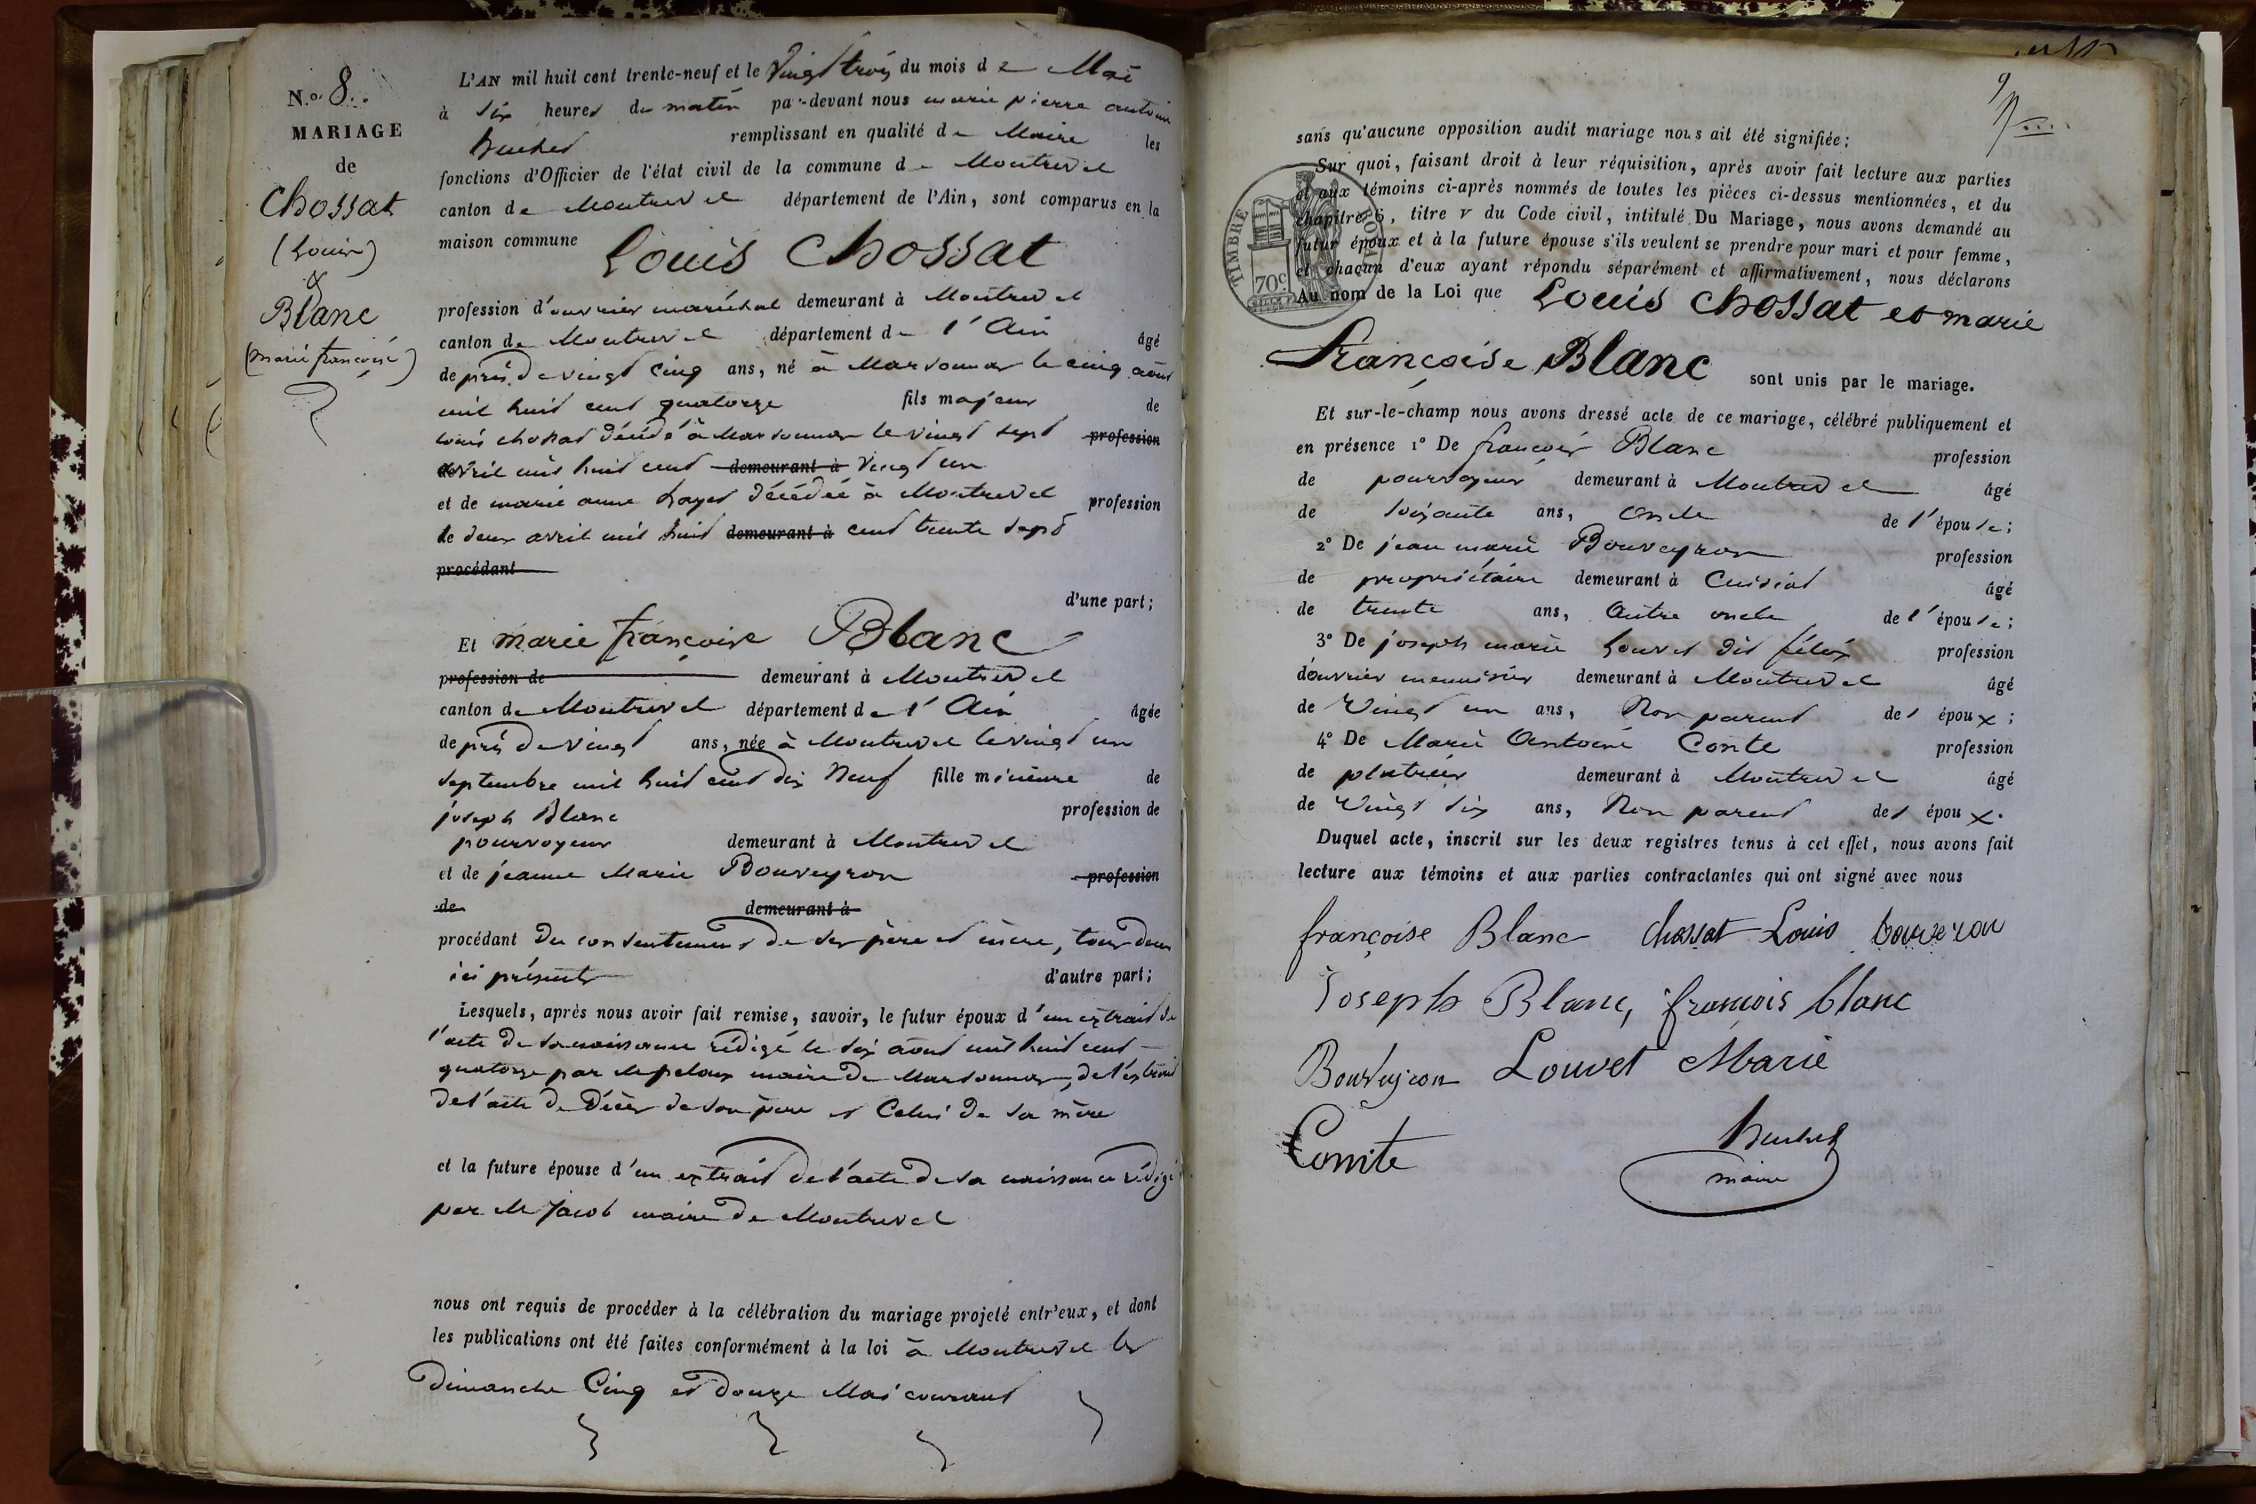 N.º 8.
MARIAGE
de
Chossat
(Louis)
&
Blanc
(marie françoise)
L'AN mil huit cent trente-neuf et le Vingt trois du mois de Mai
à six heures du matin par-devant nous marie pierre antoine
remplissant en qualité de Maire les
fonctions d'Officier de l'état civil de la commune de Montrevel
canton de Montrevel département de l'Ain, sont comparus en la
maison commune Louis Chossat
profession d'ouvrier maréchal demeurant à Montrevel
canton de Montrevel département de l'Ain âgé
de près de vingt cinq ans, né à Marsonnas le cinq août
mil huit cent quatorze fils majeur de
Louis chossat décédé à Marsonnas le vingt sept profession
avril mil huit cent demeurant à vingt un
et de marie anne décédée à Montrevel profession
le deux avril mil huit demeurant à cent trente sept
procédant
d'une part;
Et marie françoise Blanc
profession de demeurant à Montrevel
canton de Montrevel département de l'Ain âgée
de près de vingt ans, née à Montrevel le vingt un
septembre mil huit cent dix Neuf fille mineure de
joseph Blanc profession de
pourvoyeur demeurant à Montrevel
et de jeanne Marie Bouveyron profession
de demeurant à
procédant du consentement de ses père et mère, tous deux
ici présents d'autre part;
Lesquels, après nous avoir fait remise, savoir, le futur époux d'un extrait de
l'acte de sa naissance rédigé le six août mil huit cent
quatorze par maire de Marsonnas, de l'extrait
de l'acte de Décès de son père et Celui de sa mère
et la future épouse d'un extrait de l'acte de sa naissance rédigé
par Mr Jacob maire de Montrevel
nous ont requis de procéder à la célébration du mariage projeté entr'eux, et dont
les publications ont été faites conformément à la loi à Montrevel les
dimanche Cinq et douze Mai courant
9
sans qu'aucune opposition audit mariage nous ait été signifiée;
Sur quoi, faisant droit à leur réquisition, après avoir fait lecture aux parties
et aux témoins ci-après nommés de toutes les pièces ci-dessus mentionnées, et du
chapitre 6, titre V du Code civil, intitulé Du Mariage, nous avons demandé au
futur époux et à la future épouse s'ils veulent se prendre pour mari et pour femme,
et chacun d'eux ayant répondu séparément et affirmativement, nous déclarons
Au nom de la Loi que Louis Chossat et marie
Françoise Blanc sont unis par le mariage.
TIMBRE ROYAL
70c
Et sur-le-champ nous avons dressé acte de ce mariage, célébré publiquement et
en présence 1º De françois Blanc profession
de pourvoyeur demeurant à Montrevel âgé
de soixante ans, oncle de l'épouse;
2º De jean marie Bouveyron profession
de propriétaire demeurant à Cuisiat âgé
de trente ans, autre oncle de l'épouse;
3º De joseph marie Louvet dit félix profession
d'ouvrier menuisier demeurant à Montrevel âgé
de Vingt un ans, Non parent des époux;
4º De Marie Antoine Conte profession
de platrier demeurant à Montrevel âgé
de Vingt six ans, Non parent des époux.
Duquel acte, inscrit sur les deux registres tenus à cet effet, nous avons fait
lecture aux témoins et aux parties contractantes qui ont signé avec nous
françoise Blanc Chossat Louis bouveron
Joseph Blanc, françois blanc
Bouveyron Louvet Marie
Comte
maire